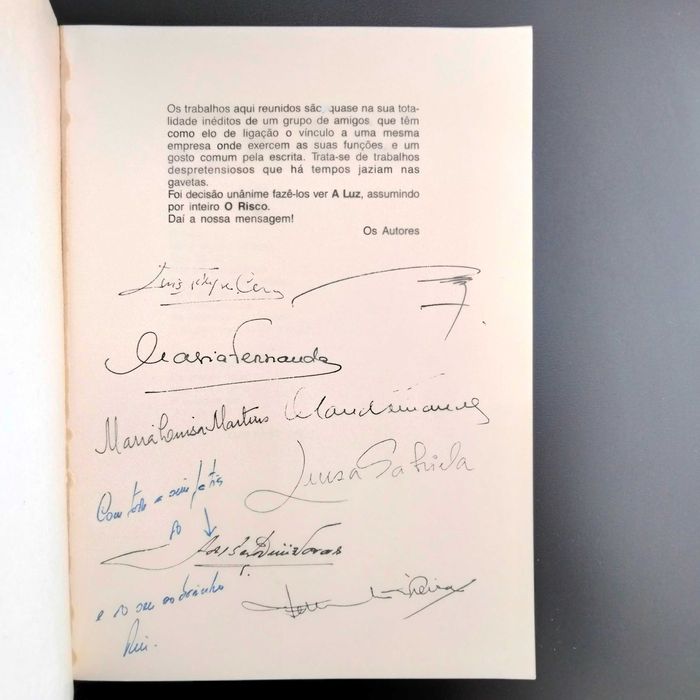 Os trabalhos aqui reunidos são, quase na sua tota-
lidade inéditos de um grupo de amigos, que têm
como elo de ligação o vínculo a uma mesma
empresa onde exercem as suas funções, e um
gosto comum pela escrita. Trata-se de trabalhos
despretensiosos que há tempos jaziam nas
gavetas.
Foi decisão unânime fazê-los ver A Luz, assumindo
por inteiro O Risco.
Daí a nossa mensagem!
Os Autores
Maria Fernanda
Maria Luisa Martins
Luisa Gabriela
Com toda a simpatia
do
e do seu
Rui.